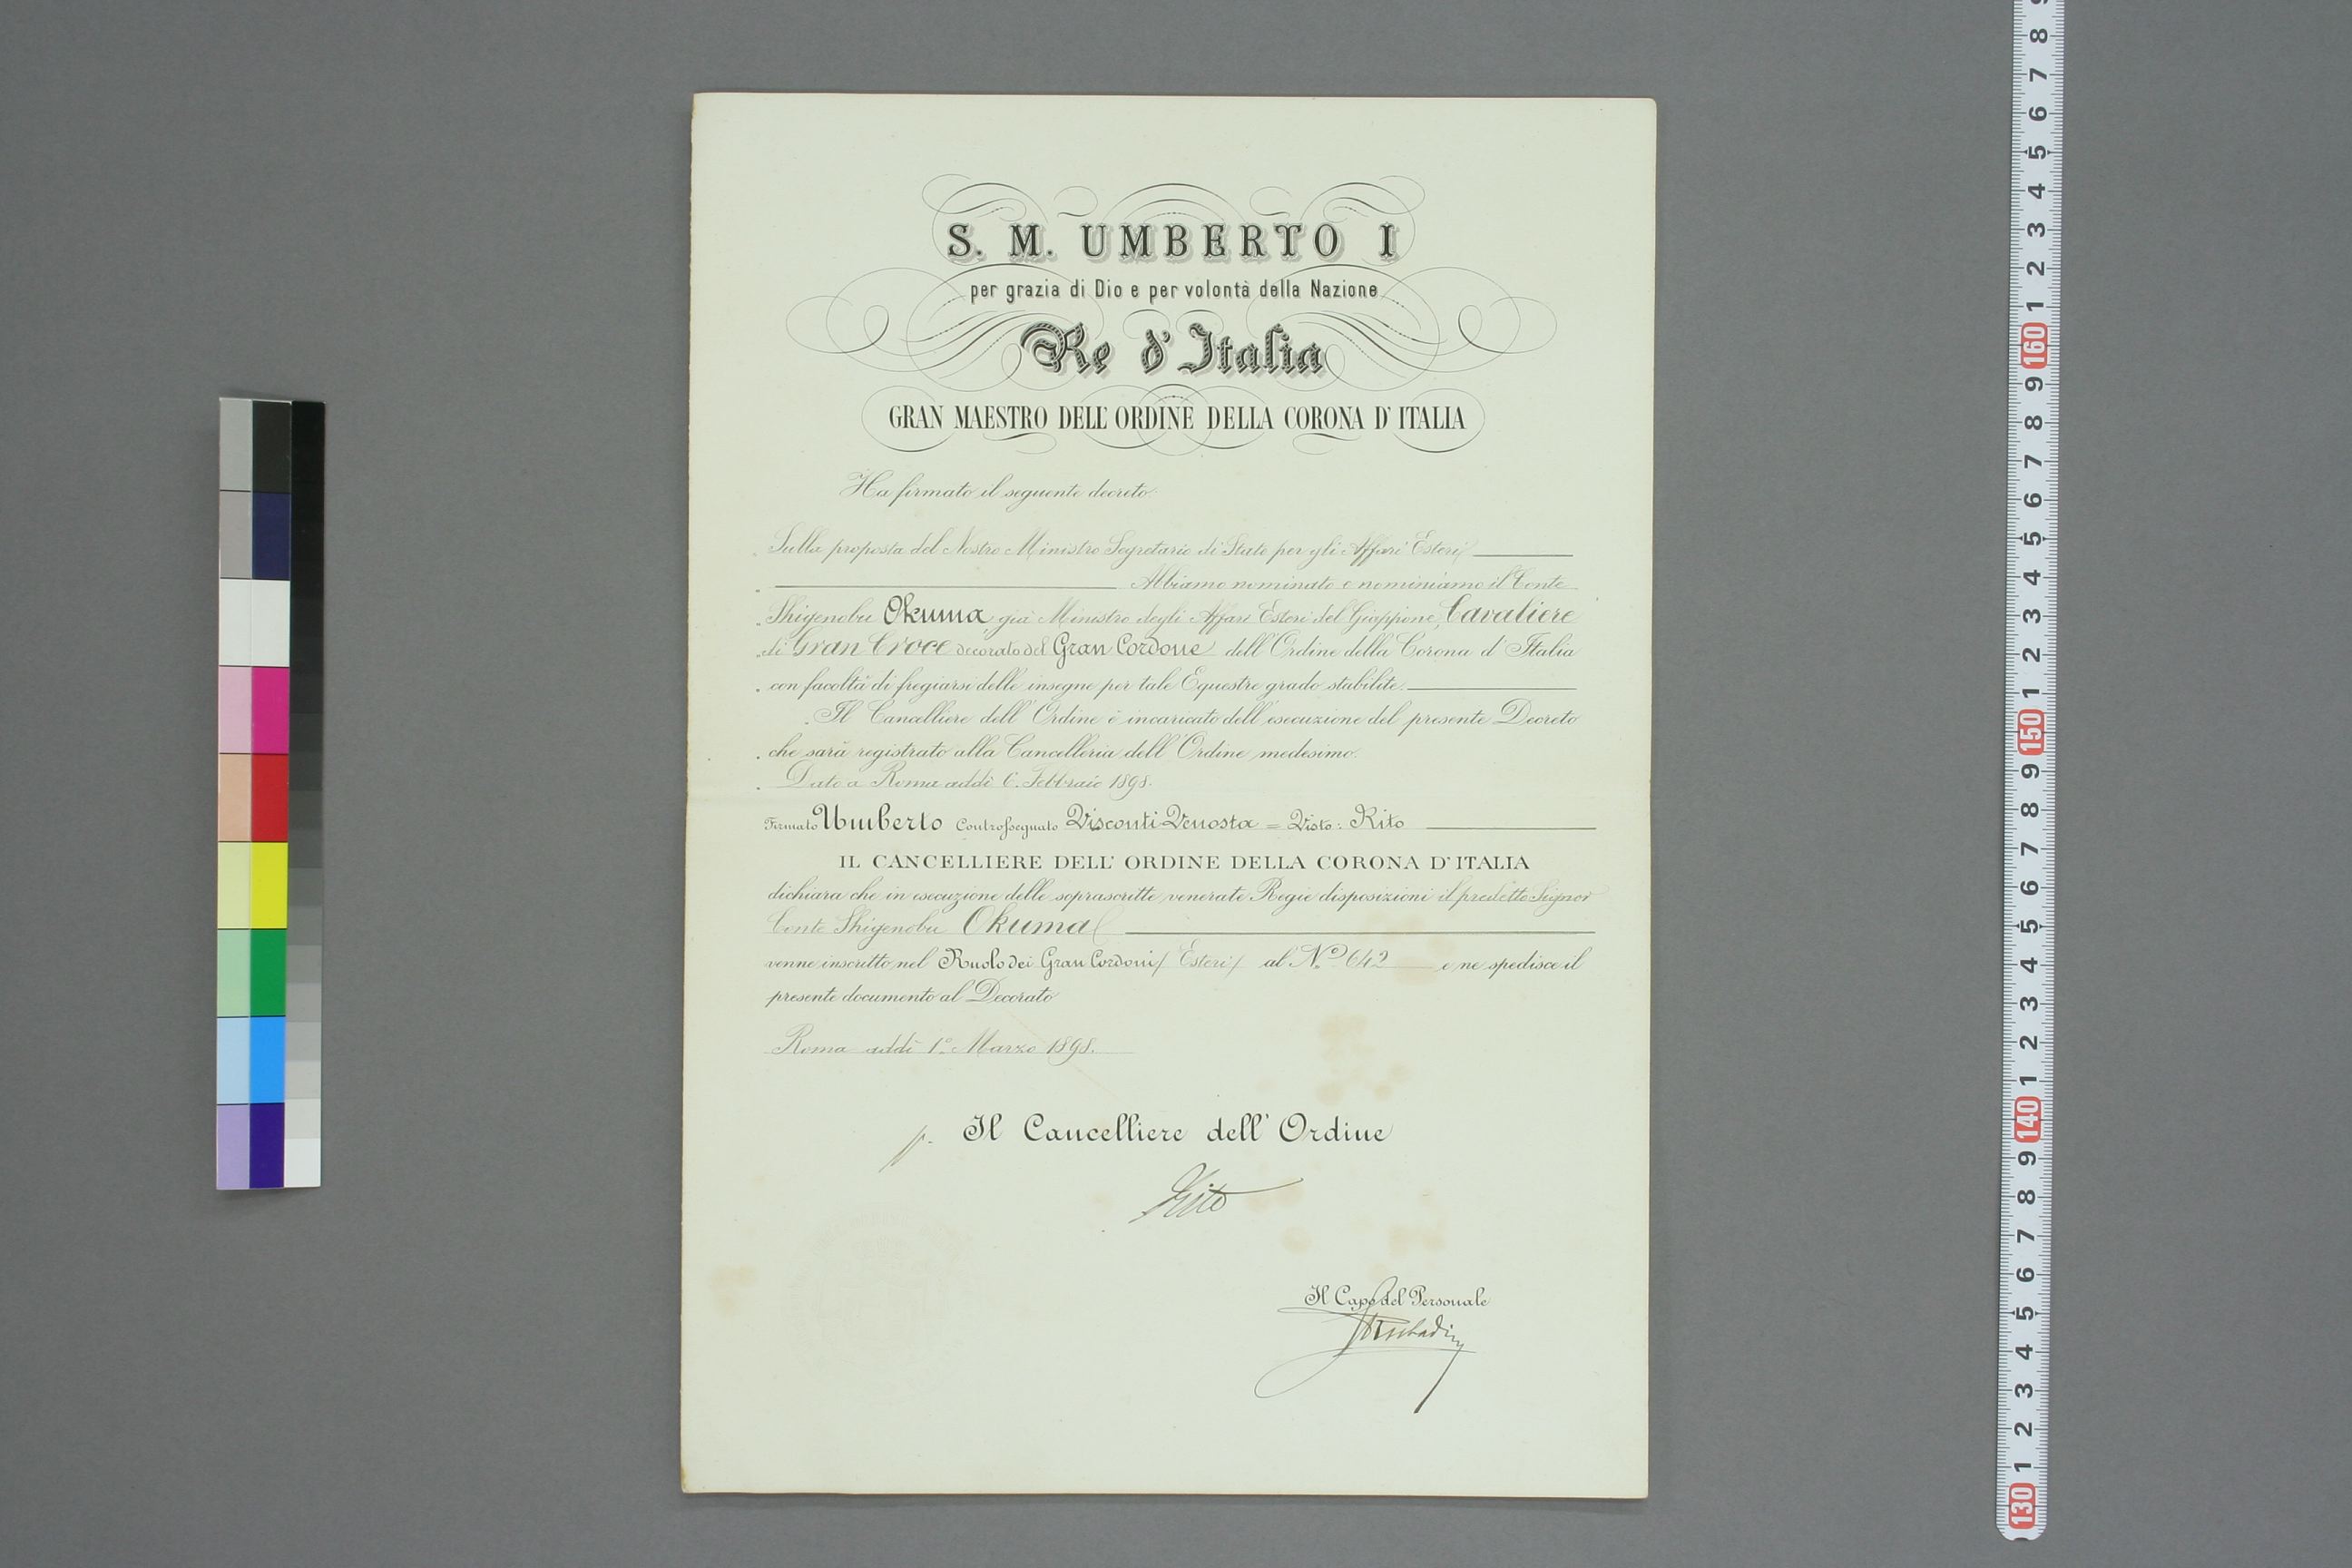 S. M. UMBERTO I
per grazia di Dio e per volontà della Nazione
Re d'Italia
GRAN MAESTRO DELL' ORDINE DELLA CORONA D'ITALIA
Ha firmato il seguente decreto:
Sulla proposta del Nostro Ministro Segretario di Stato per gli Affari Esteri
Abbiamo nominato e nominiamo il Conte
Shigenobu Okuma, già Ministro degli Affari Esteri del Giappone, Cavaliere
di Gran Croce decorato del Gran Cordone dell'Ordine della Corona d'Italia
con facoltà di fregiarsi delle insegne per tale Equestre grado stabilite.
Il Cancelliere dell'Ordine è incaricato dell'esecuzione del presente Decreto
che sarà registrato alla Cancelleria dell'Ordine medesimo.
Dato a Roma addì 6. Febbraio 1898.
Firmato Umberto Controssegnato Visconti Venosta = Visto: Rito
IL CANCELLIERE DELL' ORDINE DELLA CORONA D'ITALIA
dichiara che in esecuzione delle soprascritte venerate Regie disposizioni il predetto Signor
Conte Shigenobu Okuma
venne inscritto nel Ruolo dei Gran Cordoni (Esteri) al N.° 642 e ne spedisce il
presente documento al Decorato
Roma addì 1° Marzo 1898.
p. Il Cancelliere dell' Ordine
Rito
Il Capo del Personale
8
7
6
5
4
3
2
1
160
9
8
7
6
5
4
3
2
1
150
9
8
7
6
5
4
3
2
1
140
9
8
7
6
5
4
3
2
1
130